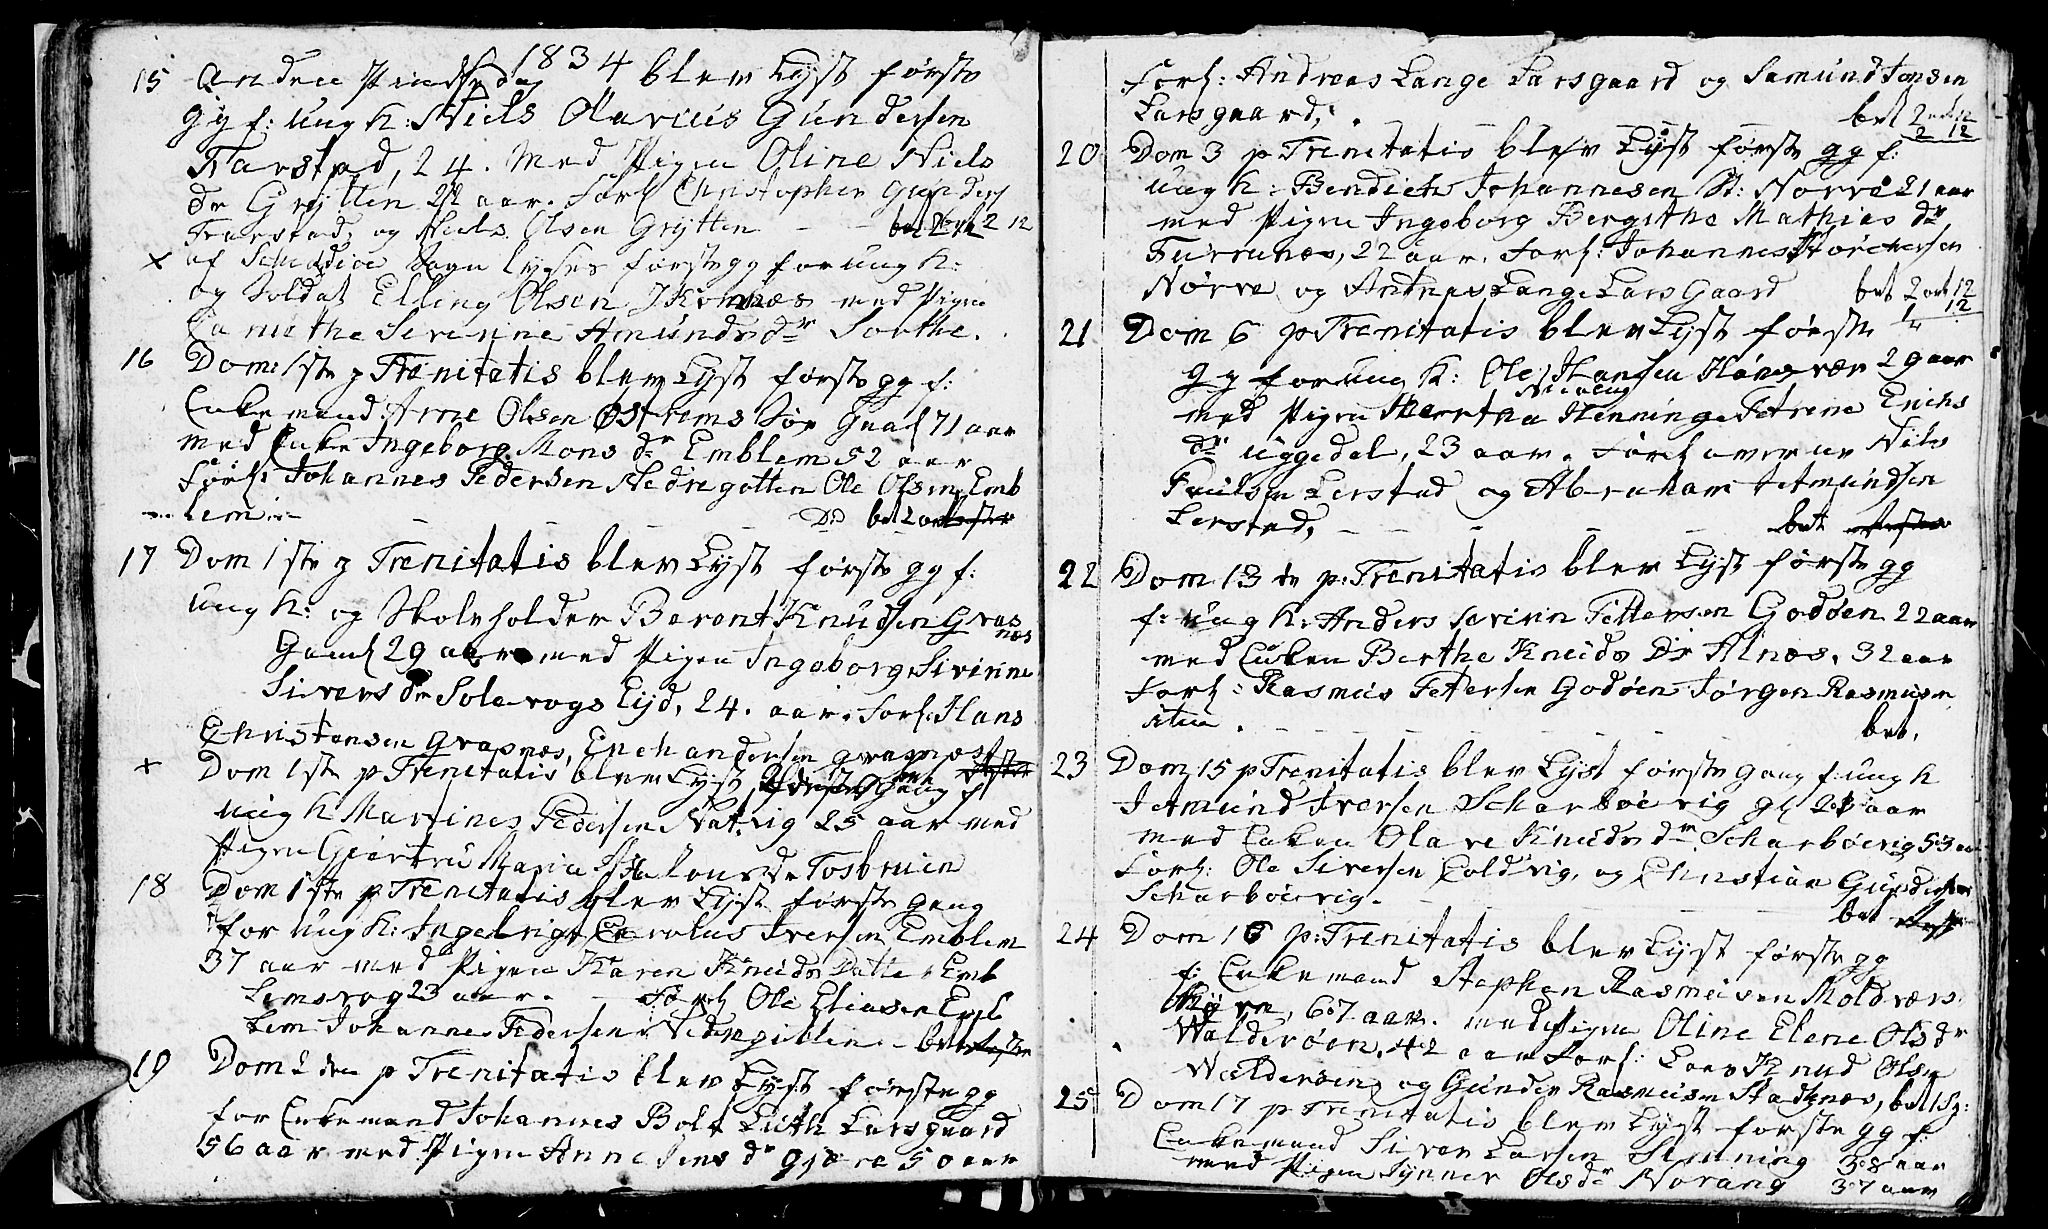 1834
15 Anden Pindsedag blev Lyst første
gg f: ung k: Niels Olavius Gundersen
Tarstad, 24. med Pigen Oline Niels
dr Grytten 22 aar. Forl Christopher Gunders
Trarstad, og Niels Olsen Grytten - - bet 2 12
x af Sognlyses første gg for ung k:
og Soldat Elling Olsen med Pigen
Severine Amunds dr Sorthe.
16 Dom: 1ste p Trenitatis blev Lyst første gg f:
Enkemand Arne Olsen Østrems Sør 71 aar
med Enke Ingeborg Mons dr Emblem 52 aar
Forl: Johannes Pedersen Nedregotten Ole Olsen Emb
lem - - bet 2 ort
17 Dom 1ste p Trenitatis blev Lyst første gg f.
ung k: og Skoleholder Berent Knudsen Gras
næs
Gaml 29 aar med Pigen Ingeborg Sivirine
Sivers dr Solevogs Eyd, 24. aar. Forl: Hans
Christensen Grasnæs, Erich andersen grasnæs
x Dom 1ste p Trenitatis blev Lyst første Gang f
ung k Martines Pedersen vig 25 aar med
Pigen Giertru Maria dr Tosbruin
18 Dom 1ste p Trenitatis blev Lyst første gang
for ung k: Ingebrigt Carolus Iversen Emblem
37 aar med Pigen Karen Knuds Datter Emb
lemsvog 23 aar. - Forl Ole Eliasen Emb
lem Johannes Pedersen - bet
19 Dom 2den p Trenitatis blev Lyst første gg
for Enkemand Johannes Bolt Luth Larsgaard
56 aar med Pigen Anne Jens dr Gjære 50 aar
Forl: Andreas Lange Larsgaard og Samund Jonsen
Larsgaard, . bet 2 ort 12
2 12
20 Dom 3 p Trenitatis blev Lyst første gg f:
ung k: Bendich Johannesen St: Nørve 21 aar
med Pigen Ingeborg Bergithe Mathias dr
Furrenæs, 22 aar. Forl: Johannes
Nørve og Andreas Lange Lars Gaard bet 2 ort 12
12
21 Dom 6 p Trenitatis blev Lyst første
gg for ung k: Ole Hansen 29 aar
med Pigen Henninge Petrine Erichs
dr uggedal, 23 aar. Forl Niels
Lerstad og Abraham Aamundsen
Lerstad, - - - bet
22 Dom 13de p: Trenitatis blev Lyst første gg
f: ung k: Anders Sevirin Pettersen Godøen 22 aar
med Enken Berthe Knuds Dr Alnæs. 32 aar
Forl: Rasmus Petersen Godøen Jørgen Rasmusen
. - - - bet.
23 Dom 15 p Trenitatis blev Lyst første gang f: ung k
Iversen Scharbøevig gl 28 aar
med Enken Olave Knuds dr Scharbøevig 53 aar
Forl: Ole Siversen Coldvig, og Christian Gundersen
Scharbøevig. - - - bet
24 Dom 16 p: Trenitatis blev Lyst første gg
f: Enkemand Stephen Rasmusen Moldværs
67 aar. med Pigen Oline Elene Ols dr
Walderøen. 42 aar Forl: Lars Knud Olsen
Walderøen, og Gunder Rasmusen Stadsnæs, bet
25 Dom 17 p Trenitatis blev Lyst første gg f:
Enkemand Siver Larsen 38 aar
med Pigen Synner Ols dr Norang 37 aar